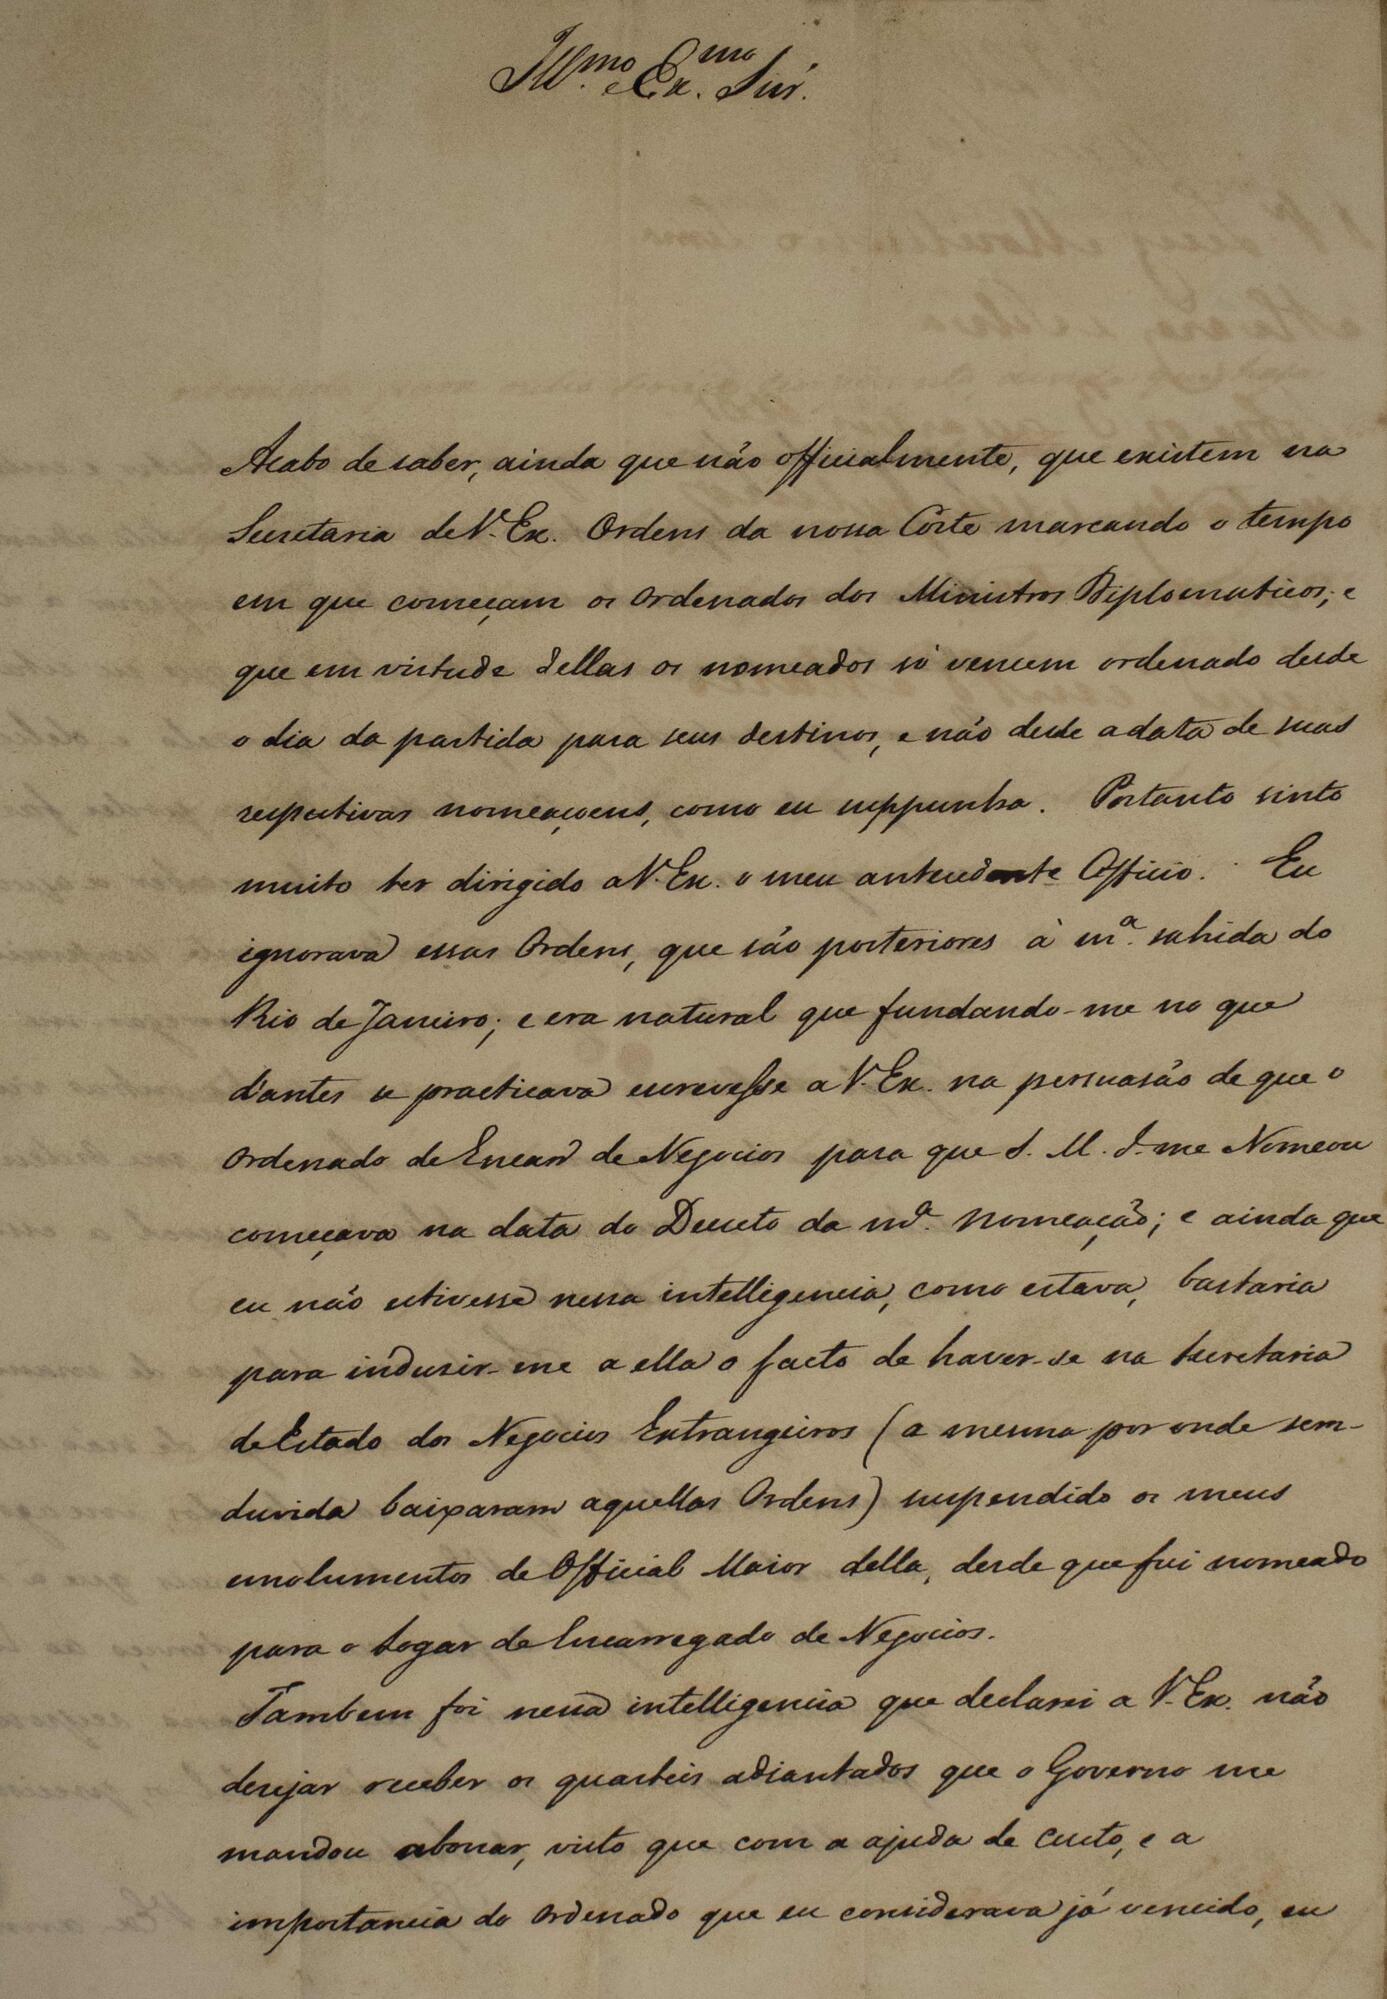 Ill.mo e Ex.mo Snr.
Acabo de saber, ainda que não officialmente, que existem na
Secretaria de V. Ex. Ordens da nossa Côrte marcando o tempo
em que começam os Ordenados dos Ministros Diplomaticos; e
que em virtude dellas os nomeados só vencem ordenado desde
o dia da partida para seus destinos, e não desde a data de suas
respectivas nomeaçoens, como eu suppunha. Portanto sinto
muito ter dirigido a V. Ex. o meu antecedente Officio. Eu
ignorava essas Ordens, que são posteriores à m.a sahida do
Rio de Janeiro; e era natural que fundando-me no que
d'antes se practicava escrevesse a V. Ex. na persuasão de que o
Ordenado de Encar.o de Negocios para que S. M. I. me Nomeou
começava na data do Decreto da m.a nomeação; e ainda que
eu não estivesse nessa intelligencia, como estava, bastaria
para indusir-me a ella o facto de haver-se na Secretaria
de Estado dos Negocios Extrangeiros (a mesma por onde sem-
duvida baixaram aquellas Ordens) suspendido os meus
emolumentos de Official Maior della, desde que fui nomeado
para o Logar de Encarregado de Negocios.
Tambem foi nessa intelligencia que declarei a V. Ex. não
desejar receber os quarteis adiantados que o Governo me
mandou abonar, visto que com a ajuda de custo, e a
importancia do Ordenado que eu considerava já vencido, eu